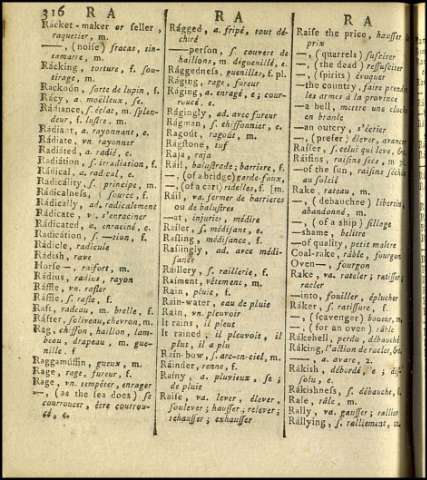 316 R A
R A
R A
Rácket-maker or seller,
raquetier, m.
—, (noise) fracas, tin-
tamarre, m.
Rácking, torture, f. sou-
tirage, m.
Rackoón, sorte de lapin, f.
Rácy, a. moëlleux, se,
Rádiance, s. éclat, m. splen-
deur, f. lustre, m.
Rádiant, a. rayonnant, e.
Rádiate, vn. rayonner
Rádiated, a. radié, e.
Radiátion, s. irradiation, f.
Rádical, a. radical, e.
Radicality, s. principe, m.
Rádicalness, source, f.
Rádically, ad. radicalement
Rádicate, va. s'enraciner
Rádicated, a. enraciné, e.
Radicátion, s. —tion, f.
Rádicle, radicule
Rádish, rave
Horse—, raifort, m.
Rádius, radius, rayon
Ráffle, vn. rafler
Ráffle, s. rafle, f.
Raft, radeau, m. brelle, f.
Ráfter, soliveau, chevron, m.
Rag, chiffon, haillon, lam-
beau, drapeau, m. gue-
nille, f.
Raggamúffin, gueux, m.
Rage, rage, fureur, f.
Rage, vn. tempêter, enrager
—, (as the sea does) se
courroucer, être courrou-
cé, e.
Rágged, a. fripé, tout dé-
chiré
—person, s. couvert de
haillons, m. déguenillé, e.
Rággedness, guenilles, f. pl.
Ráging, rage, fureur
Ráging, a. enragé, e; cour-
roucé, e.
Rágingly, ad. avec fureur
Rágman, s. chiffonnier, e.
Ragoút, ragoût, m.
Rágstone, tuf
Raja, raja
Ráil, balustrade; barriere, f.
—, (of a bridge) garde-foux,
—, (of a cart) ridelles, f. [m.
Ráil, va. fermer de barrieres
ou de balustres
—at, injurier, médire
Ráiler, s. médisant, e.
Ráiling, médisance, f.
Ráilingly, ad. avec médi-
sance
Ráillery, s. raillerie, f.
Raiment, vêtement, m.
Rain, pluie, f.
Rain-water, eau de pluie
Rain, vn. pleuvoir
It rains, il pleut
It rained; il pleuvoit, il
plut, il a plu
Rain-bow, s. arc-en-ciel, m.
Ráindeer, renne, f.
Rainy, a. pluvieux, se;
de pluie
Raise, va. lever, élever,
soulever; hausser, relever;
rehausser; exhausser
Raise the price, hausser le
prix
—, (quarrels) susciter
—, (the dead) ressusciter
—, (spirits) évoquer
—the country, faire prendre
les armes à la province
—a bell, mettre une cloche
en branle
—an outcry, s'écrier
—, (prefer) élever, avancer
Ráiser, s. celui qui leve, &c.
Ráisins, raisins secs, m.
—of the sun, raisins séchés
au soleil
Rake, rateau, m.
—, (debauchee) libertin,
abandonné, m.
—, (of a ship) sillage
—shame, belitre
—of quality, petit maître
Coal-rake, râble, fourgon
Oven—, fourgon
Rake, va. rateler; ratisser;
racler
—into, fouiller, éplucher
Ráker, s. ratissure, f.
—, (scavenger) boueur, m.
—, (for an oven) râble
Rákehell, perdu, débauché
Ráking, l'action de racler, &c.
—, a. avare, 2.
Rákish, débordé, e; dis-
solu, e.
Rákishness, s. débauche, f.
Rale, râle, m.
Rally, va. gausser; rallier
Rállying, s. ralliement, m.